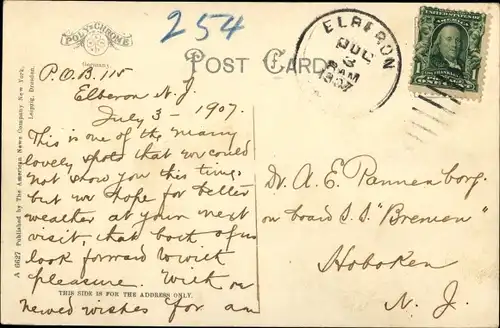 254
POLY-CHROME
Germany.
ELBERON
3
AM
1907
UNITED STATES OF AMERICA
POST CARD
P.O.B. 115
Elberon N.J.
July 3 - 1907.
This is one of the many
lovely spots that we could
not show you this time,
but we hope for better
weather at your next
visit, that both of us
look forward to with
pleasure. With
newed wishes for an
THIS SIDE IS FOR THE ADDRESS ONLY.
Dr. A. E. Pannenborg.
on board S.S. "Bremen"
Hoboken
N. J.
A 6627 Published by The American News Company New York,
Leipzig, Dresden.